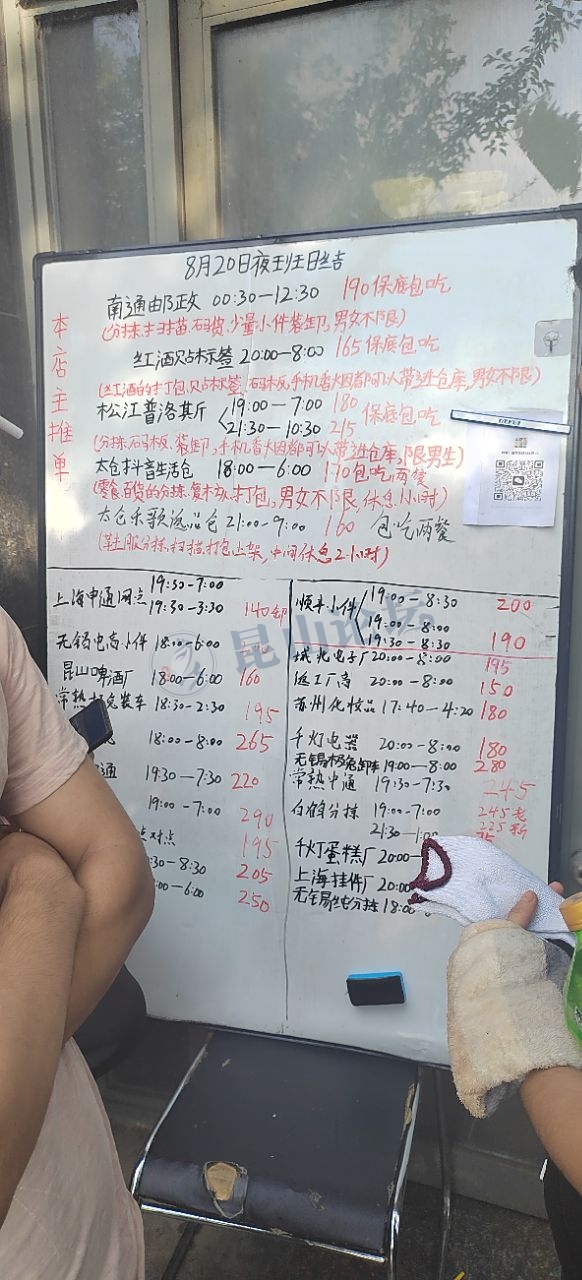 8月20日夜班日结
本店主推单
南通邮政 00:30—12:30 190保底包吃
(分拣.扫描.码货.少量小件装卸,男女不限)
红酒贴标签 20:00—8:00 165保底包吃
(红酒的打包,贴标签,码板,手机香烟都可以带进仓库,男女不限)
松江普洛斯 19:00—7:00 180 保底包吃
21:30—10:30 215
(分拣.码板.装卸,手机香烟都可以带进仓库,限男生)
太仓抖音生活仓 18:00—6:00 170包吃两餐
(零食.百货的分拣.复核.打包,男女不限,休息1小时)
太仓乐歌返品仓 21:00—9:00 160 包吃两餐
(鞋服分拣,扫描,打包上架,中间休息2小时)
上海申通网点 19:30-7:00
19:30-3:30 140卸
无锡电商小件 18:00-6:00
昆山啤酒厂 18:00—6:00 160
常熟极兔装车 18:30-2:30 195
18:00—8:00 265
通 19:30—7:30 220
19:00—7:00 290
点对点 195
:30—8:30 205
—6:00 250
顺丰小件 19:00—8:30 200
19:00—8:00
19:30—8:30 190
城北电子厂 20:00—8:00 195
返工厂商 20:00—8:00 150
苏州化妆品 17:40—4:20 180
千灯电器 20:00—8:00 180
无锡极兔卸车 19:00—8:00 280
常熟申通 19:30-7:30 245
白鹤分拣 19:00-7:00 245老
225新
21:30—1:00
千灯蛋糕厂 20:00—
上海挂件厂 20:00
无锡纯分拣 18:00
昆山论坛